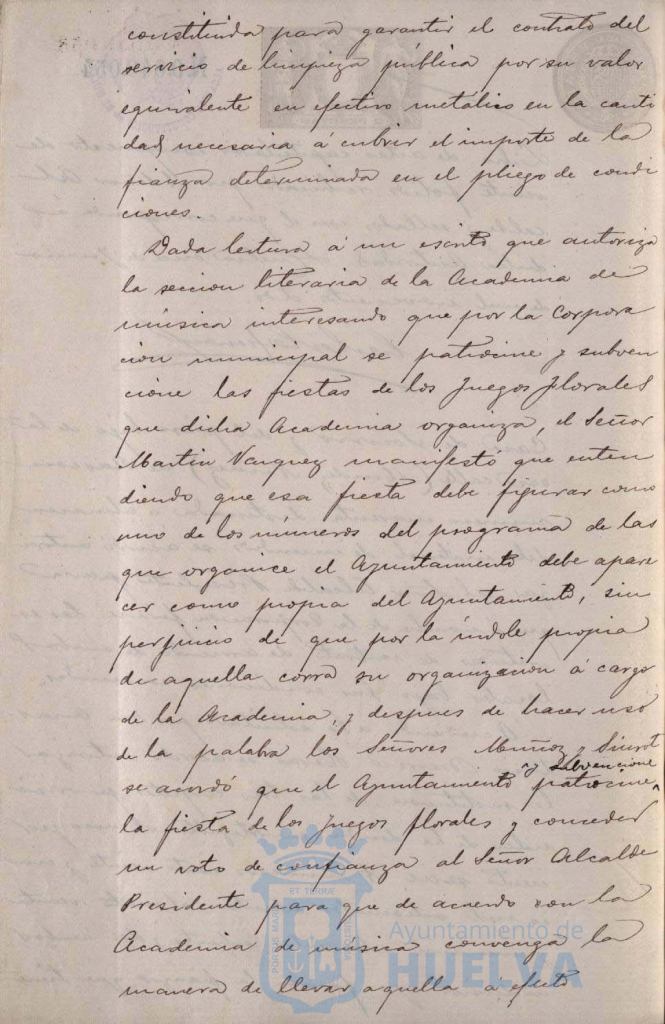 constituida para garantir el contrato del
servicio de limpieza pública por su valor
equivalente en efectivo metálico en la canti
dad necesaria á cubrir el importe de la
fianza determinada en el pliego de condi
ciones.
Dada lectura á un escrito que autoriza
la seccion literaria de la Academia de
música interesando que por la Corpora
cion municipal se patrocine y subven
cione las fiestas de los Juegos florales
que dicha Academia organiza, el Señor
Martin Vazquez manifestó que enten
diendo que esa fiesta debe figurar como
uno de los números del programa de las
que organice el Ayuntamiento debe apare
cer como propia del Ayuntamiento, sin
perjuicio de que por la índole propia
de aquella corra su organizacion á cargo
de la Academia, y despues de hacer uso
de la palabra los Señores Muñoz y Siurot
y subvencione
se acordó que el Ayuntamiento patrocine
la fiesta de los Juegos florales y conceder
un voto de confianza al Señor Alcalde
Presidente para que de acuerdo con la
Academia de música convenga la
manera de llevar aquella á efecto
ET TERRÆ
PORTUS MARIS
Ayuntamiento de
HUELVA